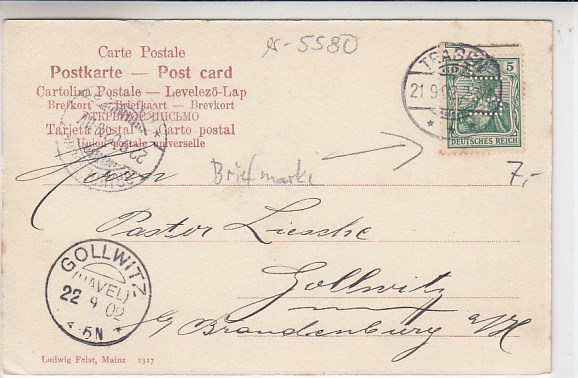 es-5580
Carte Postale
Postkarte — Post card
Cartolina Postale — Levelező-Lap
Brefkort — Briefkaart — Brevkort
ОТКРЫТОЕ ПИСЬМО
Tarjeta postal — Carto postal
Union postale universelle
21 9
5
DEUTSCHES REICH
7,-
Briefmarke
Herrn
Pastor Liesche
Gollwitz
Brandenburg a/H
GOLLWITZ
(HAVEL)
22 9 02
4-5N
Ludwig Feist, Mainz 2317